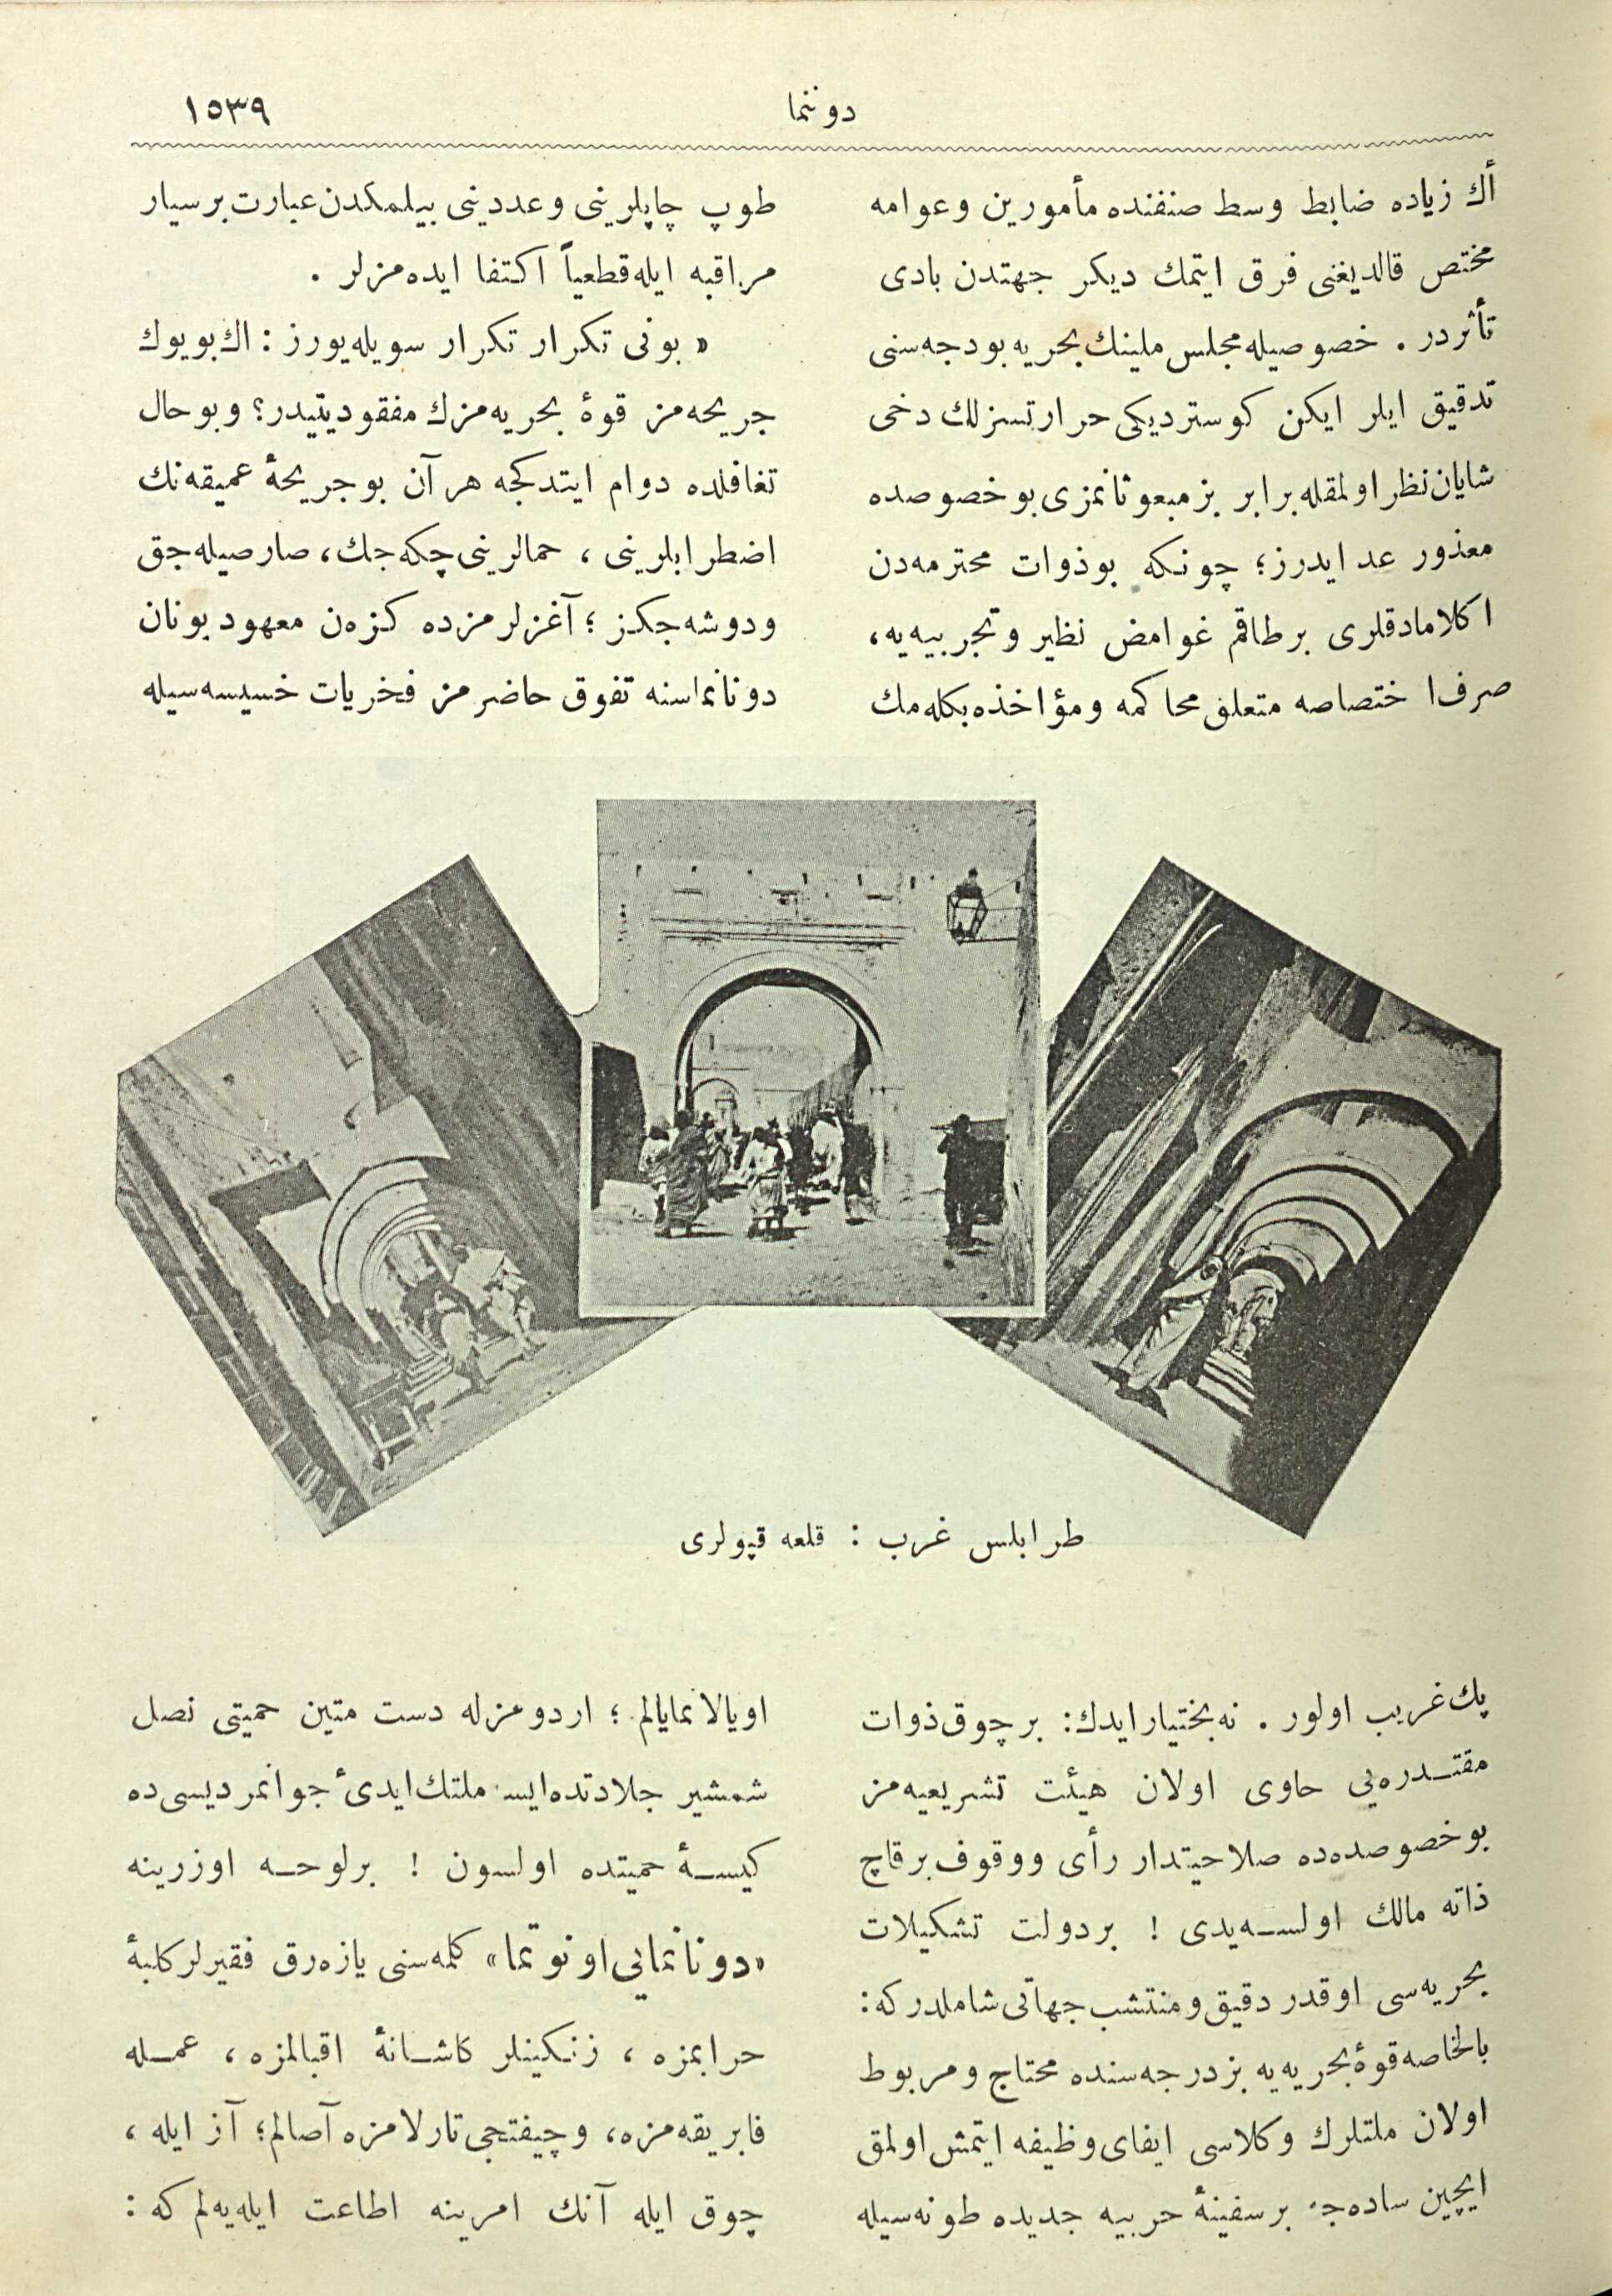 دوننما
١٥٣٩
أك زياده ضابط وسط صنفنده مأمورين وعوامه
مختص قالديغنى فرق ايتمك ديكر جهتدن بادى
تأثردر . خصوصيله مجلس ملينك بحريه بودجه‌سنى
تدقيق ايلر ايكن كوسترديكى حرارتسزلك دخى
شايان نظر اولمقله برابر بز مبعوثانمزى بو خصوصده
معذور عد ايدرز؛ چونكه بو ذوات محترمه‌دن
اكلامادقلرى بر طاقم غوامض نظير وتجربيه‌يه،
صرفا ختصاصه متعلق محاكمه ومؤاخذه بكله‌مك
پك غريب اولور . نه بختيار ايدك: بر چوق ذوات
مقتدره‌يى حاوى اولان هيئت تشريعيه‌مز
بو خصوصده‌ده صلاحيتدار رأى ووقوف بر قاچ
ذاته مالك اولسه‌يدى ! بر دولت تشكيلات
بحريه‌سى اوقدر دقيق ومنتشب جهاتى شاملدركه:
بالخاصه قوۀ بحريه‌يه بز درجه‌سنده محتاج ومربوط
اولان ملتلرك وكلاسى ايفاى وظيفه ايتمش اولمق
ايچين ساده‌جه بر سفينۀ حربيه جديده طونه‌سيله
طوپ چاپلرينى وعددينى بيلمكدن عبارت بر سيار
مراقبه ايله قطعياً اكتفا ايده‌مزلر .
« بونى تكرار تكرار سويله‌يورز : اك بويوك
جريحه‌مز قوۀ بحريه‌مزك مفقوديتيدر؟ وبو حال
تغافلده دوام ايتدكجه هر آن بو جريحۀ عميقه‌نك
اضطرابلرينى ، حمالرينى چكه‌جك، صارصيله‌جق
ودوشه‌جكز ؛ آغزلرمزده كزه‌ن معهود يونان
دونانماسنه تفوق حاضرمز فخريات خسيسه‌سيله
اويالانمايالم ؛ اردومزله دست متين حميتى نصل
شمشير جلادتده ايسه ملتك ايدئ جوانمرديسى ده
كيسۀ حميتده اولسون ! بر لوحه اوزرينه
«دونانمايى اونوتما» كلمه‌سنى يازه‌رق فقيرلر كلبۀ
حرابمزه ، زنكينلر كاشانۀ اقبالمزه ، عمله
فابريقه‌مزه، وچيفتجى تارلامزه آصالم؛ آز ايله ،
چوق ايله آنك امرينه اطاعت ايله‌يه‌لم كه :
طرابلس غرب : قلعه قپولرى